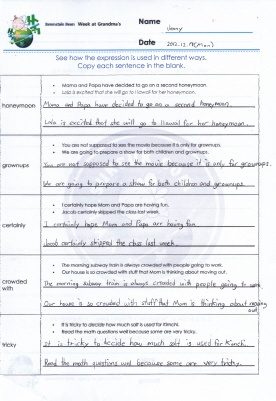 Berenstain Bears Week at Grandma's
Name
Jenny
Date 2012.12.
(Mon)
See how the expression is used in different ways.
Copy each sentence in the blank.
honeymoon
• Mama and Papa have decided to go on a second honeymoon.
• Lala is excited that she will go to Hawaii for her honeymoon.
Mama and Papa have decided to go on a second honeymoon.
Lala is excited that she will go to Hawaii for her honeymoon.
grownups
• You are not supposed to see the movie because it is only for grownups.
• We are going to prepare a show for both children and grownups.
You are not supposed to see the movie because it is only for grownups.
We are going to prepare a show for both children and grownups.
certainly
• I certainly hope Mom and Papa are having fun.
• Jacob certainly skipped the class last week.
I certainly hope Mom and Papa are having fun.
Jacob certainly skipped the class last week.
crowded
with
• The morning subway train is always crowded with people going to work.
• Our house is so crowded with stuff that Mom is thinking about moving out.
The morning subway train is always crowded with people going to work.
Our house is so crowded with stuff that Mom is thinking about moving
out.
tricky
• It is tricky to decide how much salt is used for Kimchi.
• Read the math questions well because some are very tricky.
It is tricky to decide how much salt is used for Kimchi.
Read the math questions well because some are very tricky.